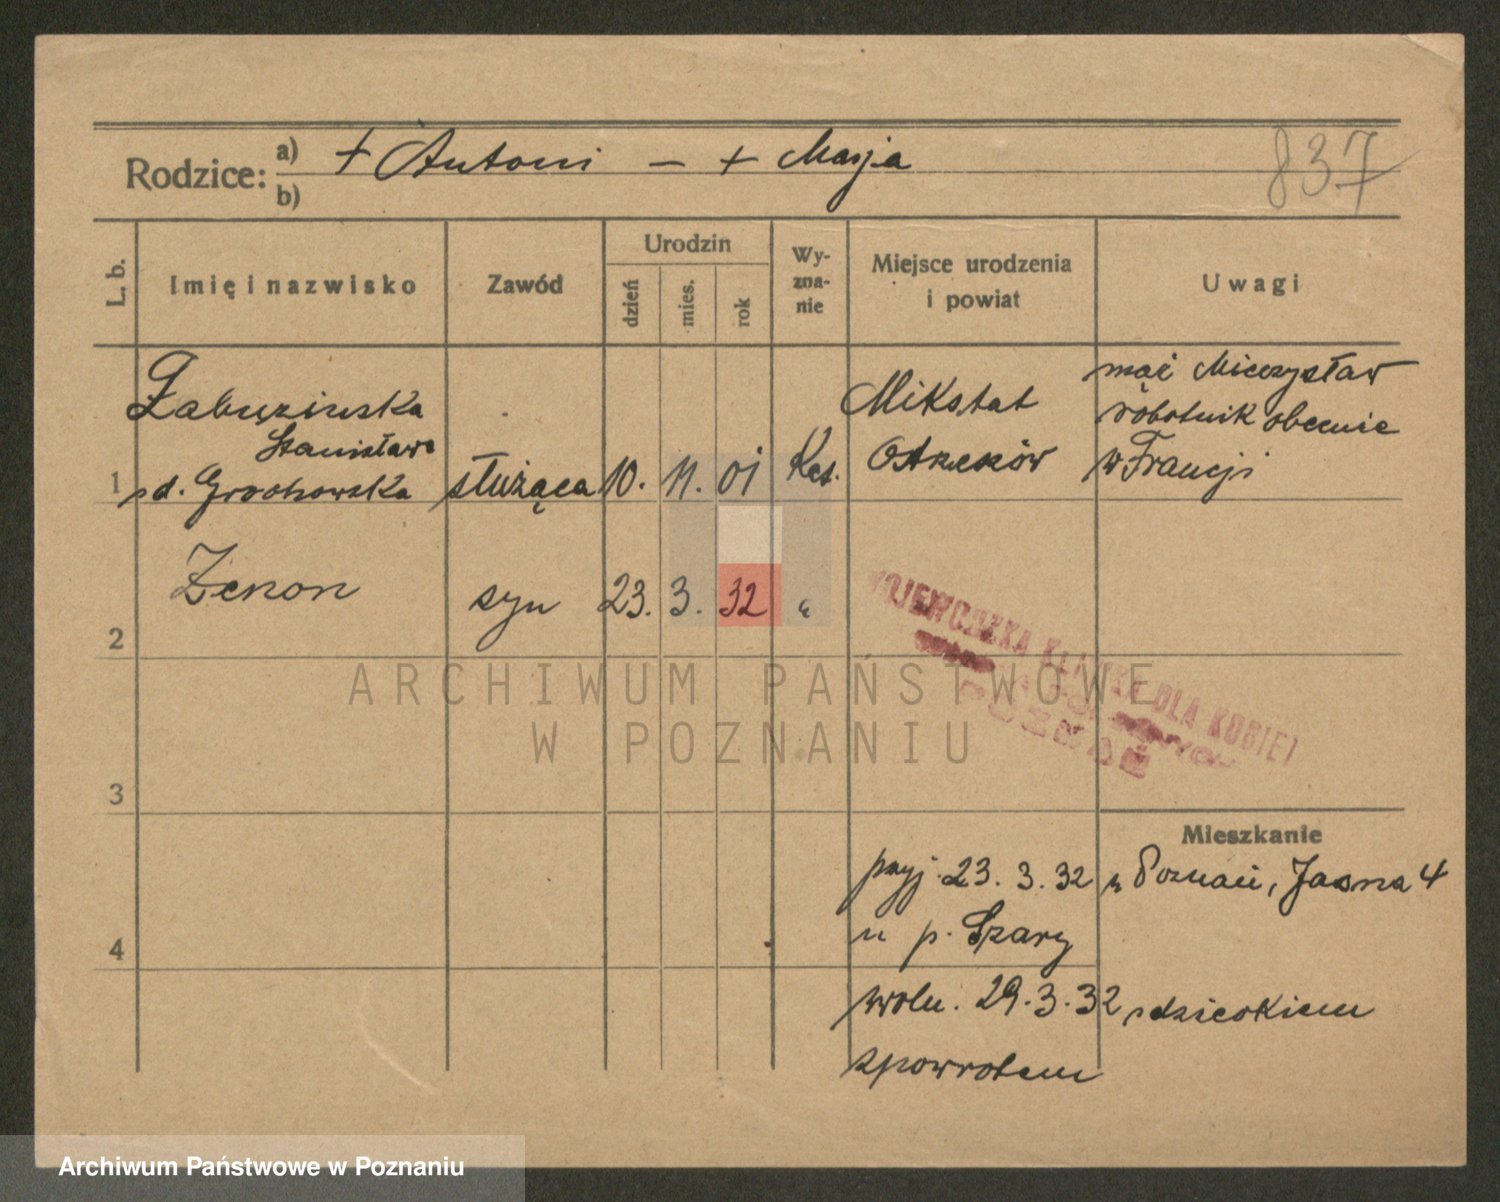 Rodzice: a) + Antoni — + Marja
b)
837
L. b.
Imię i nazwisko
Zawód
Urodzin
dzień
mies.
rok
Wy-
zna-
nie
Miejsce urodzenia
i powiat
Uwagi
Stanisława
1 d. Grochowska służąca 10. 11. 01 Kat.
Mikstat
mąż Mieczysław
robotnik obecnie
w Francji
2 Zenon syn 23. 3. 32 "
WOJEWÓDZKA KLINIKA DLA KOBIET
3
Mieszkanie
4
przyj. 23. 3. 32 Poznań, Jasna 4
u p. Szary
woln. 29. 3. 32 z dzieckiem
zpowrotem
ARCHIWUM PAŃSTWOWE
W POZNANIU
Archiwum Państwowe w Poznaniu